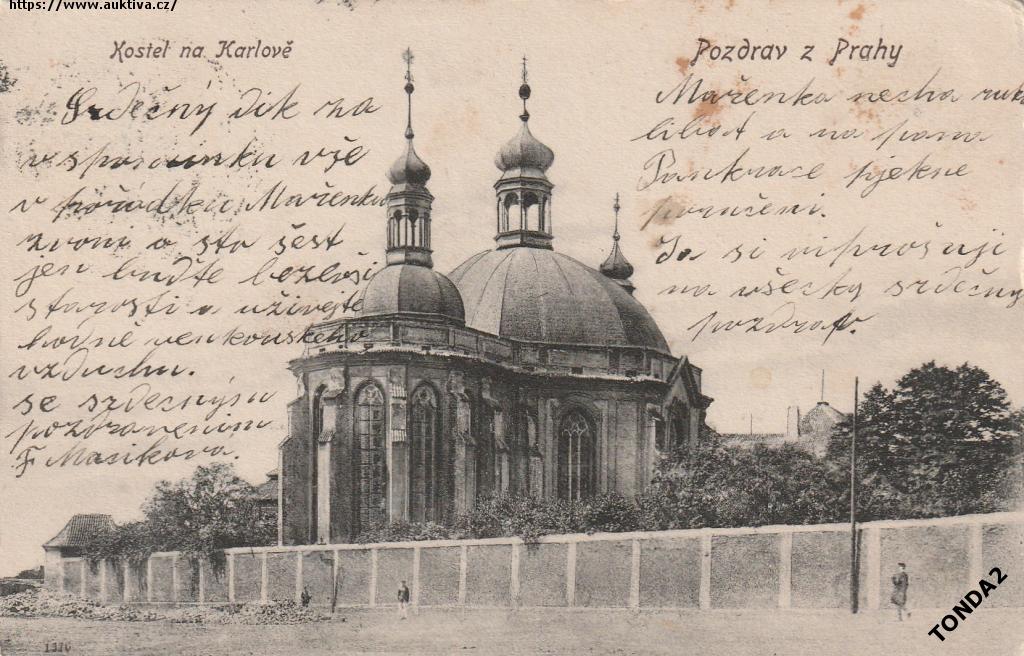 https://www.auktiva.cz/
Kostel na Karlově
Pozdrav z Prahy
Srdečný dik za
vzpomínku vše
v pořádku Mařenku
zvoni o sto šest
jen buďte bezevší
starosti a uživejte
hodně venkovského
vzduchu.
se srdečným
pozdravenim
F Masikova.
Mařenka nechá ruk
líbat a na pana
Pankrace pjekne
poručeni.
Ja si viprošuji
na všecky srdečny
pozdraf.
1310
TONDA2